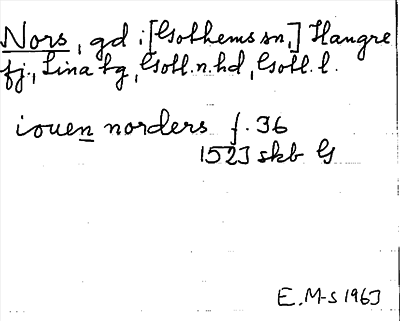 Nors, gd i [Gothems sn,] Hangre
fj., Lina tg, Gotl. n. hd, Gotl. l.
iouen norders f. 36
1523 skb G
E. M-s 1963